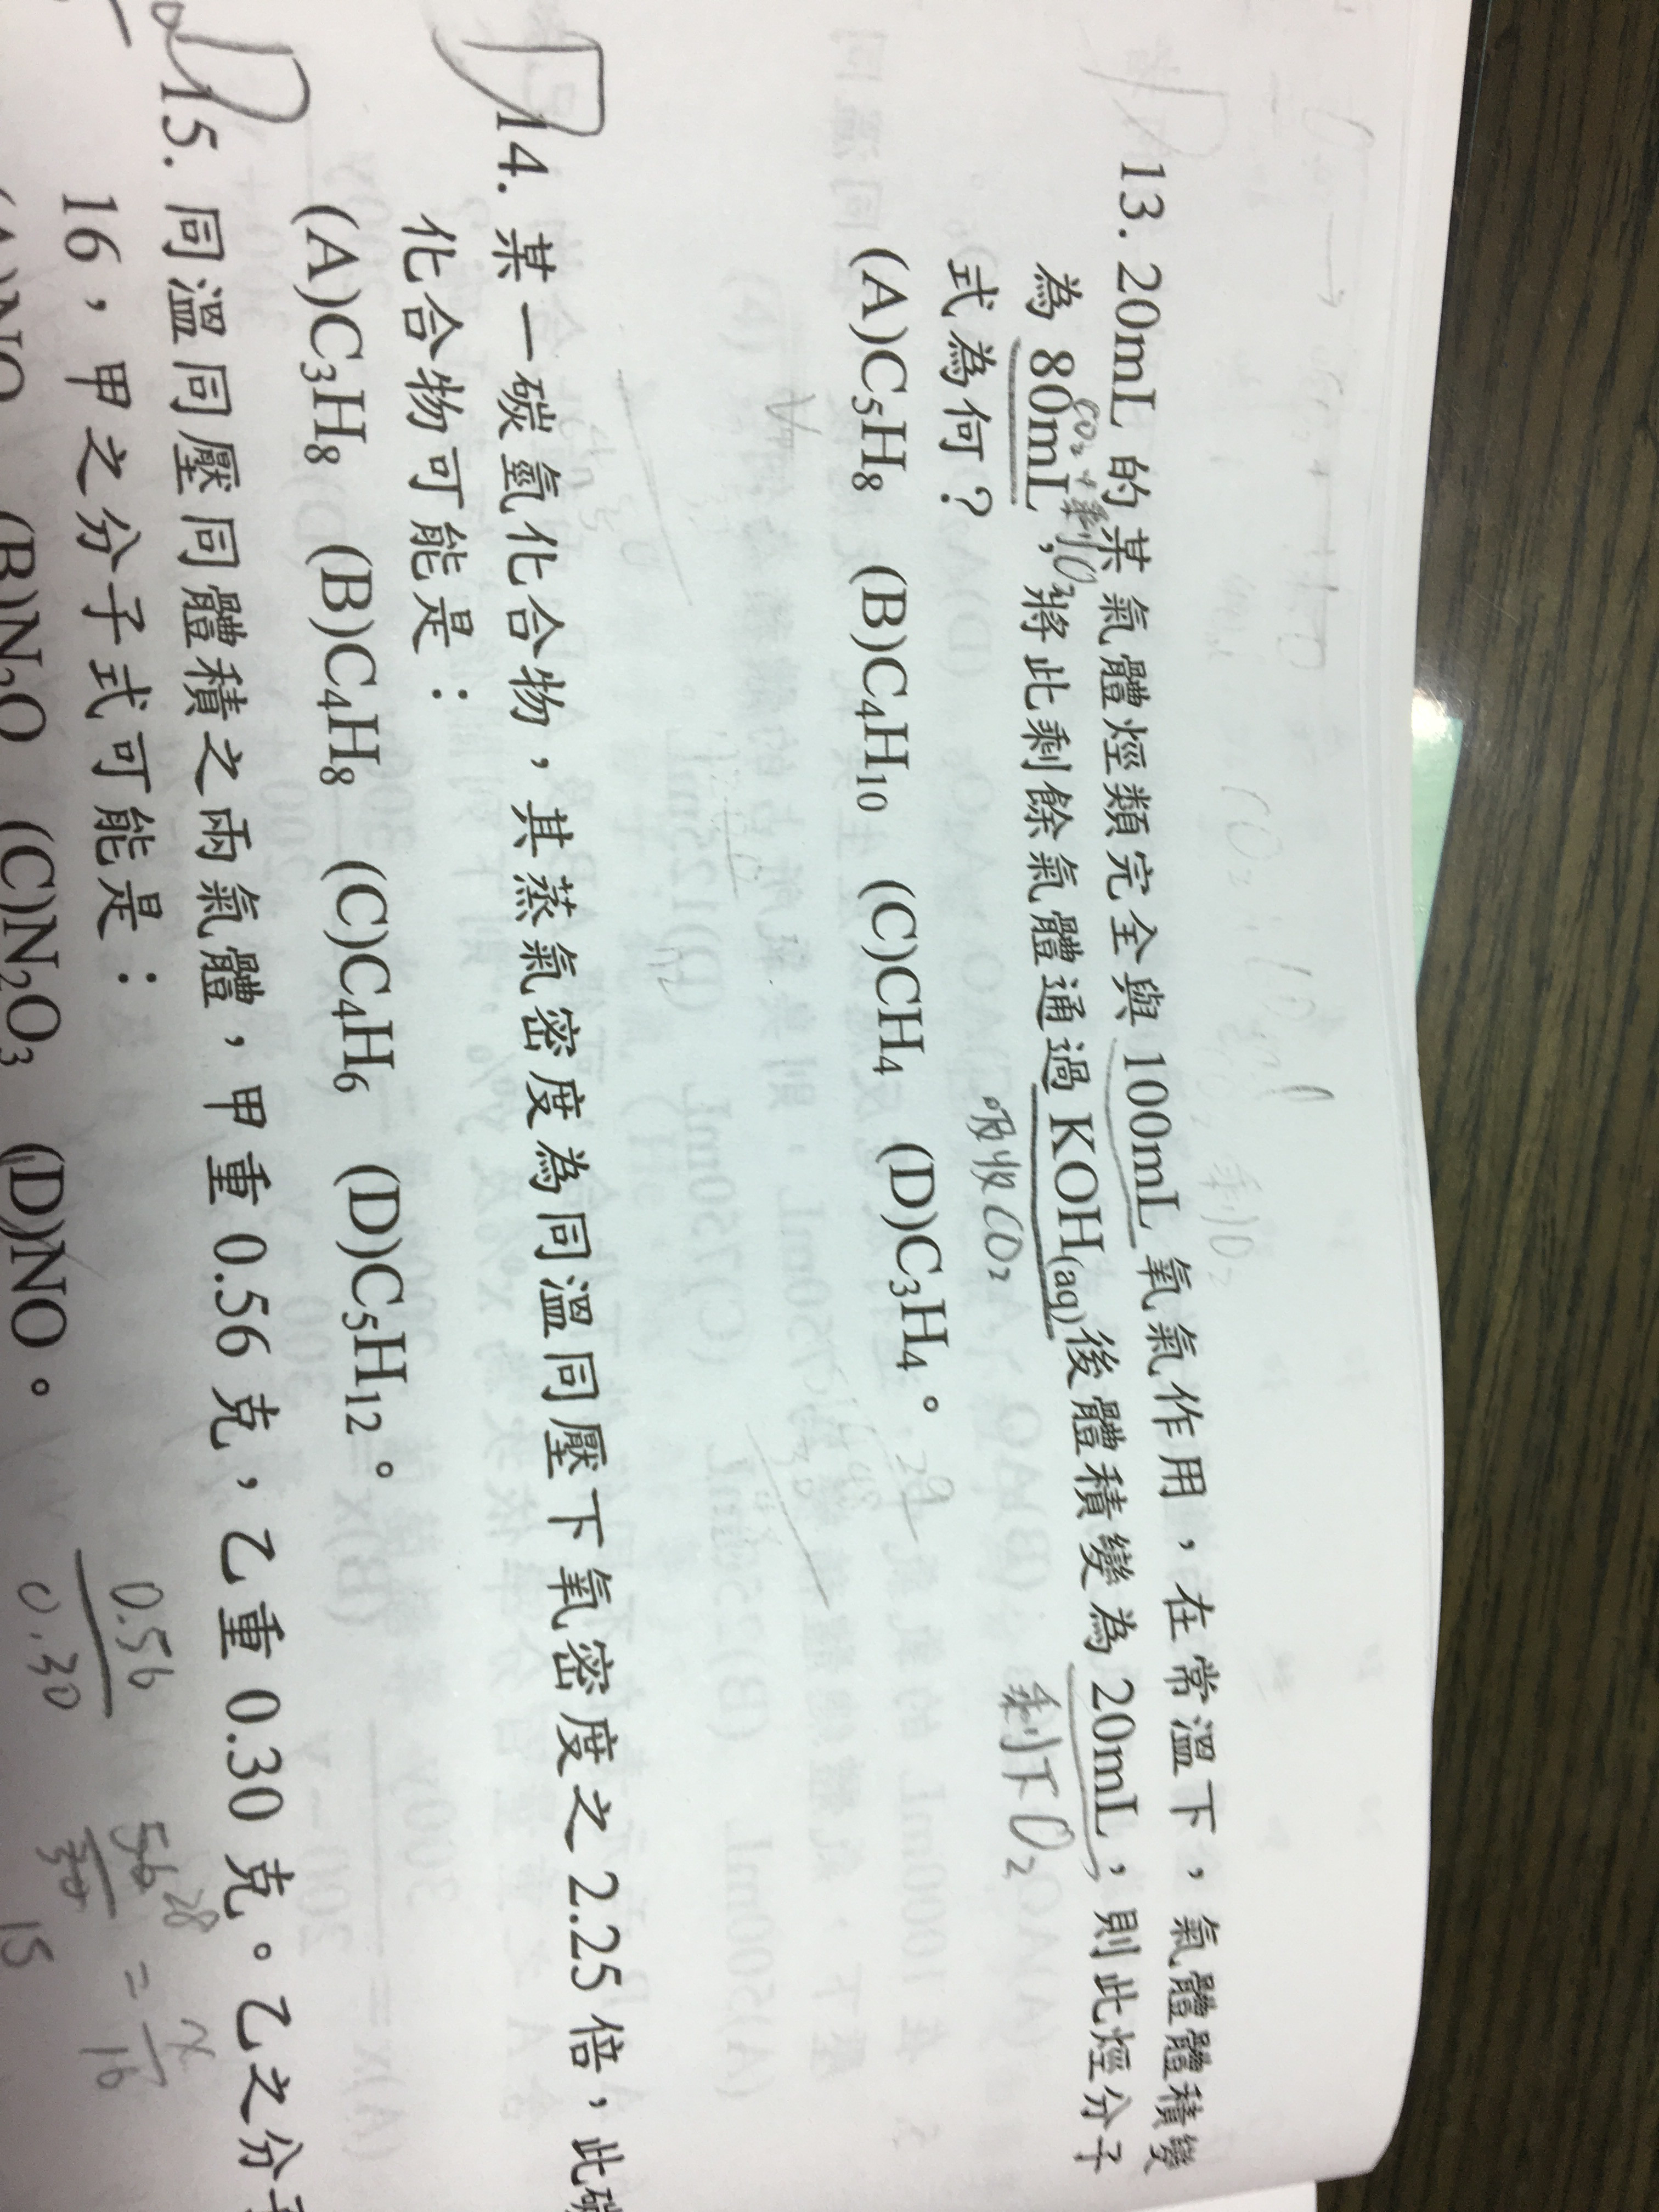 13. 20mL 的某氣體烴類完全與 100mL 氧氣作用，在常溫下，氣體體積變
為 80mL，將此剩餘氣體通過 KOH(aq)後體積變為 20mL，則此烴分子
CO₂+剩O₂
吸收CO₂
剩下O₂
式為何？
(A)C₅H₈ (B)C₄H₁₀ (C)CH₄ (D)C₃H₄。
D
14. 某一碳氫化合物，其蒸氣密度為同溫同壓下氧密度之 2.25 倍，此碳
化合物可能是：
(A)C₃H₈ (B)C₄H₈ (C)C₄H₆ (D)C₅H₁₂。
D
15. 同溫同壓同體積之兩氣體，甲重 0.56 克，乙重 0.30 克。乙之分子
16，甲之分子式可能是：
(B)N₂O (C)N₂O₃ (D)NO。
0.56
0.30
56 28 = x
30 15 16